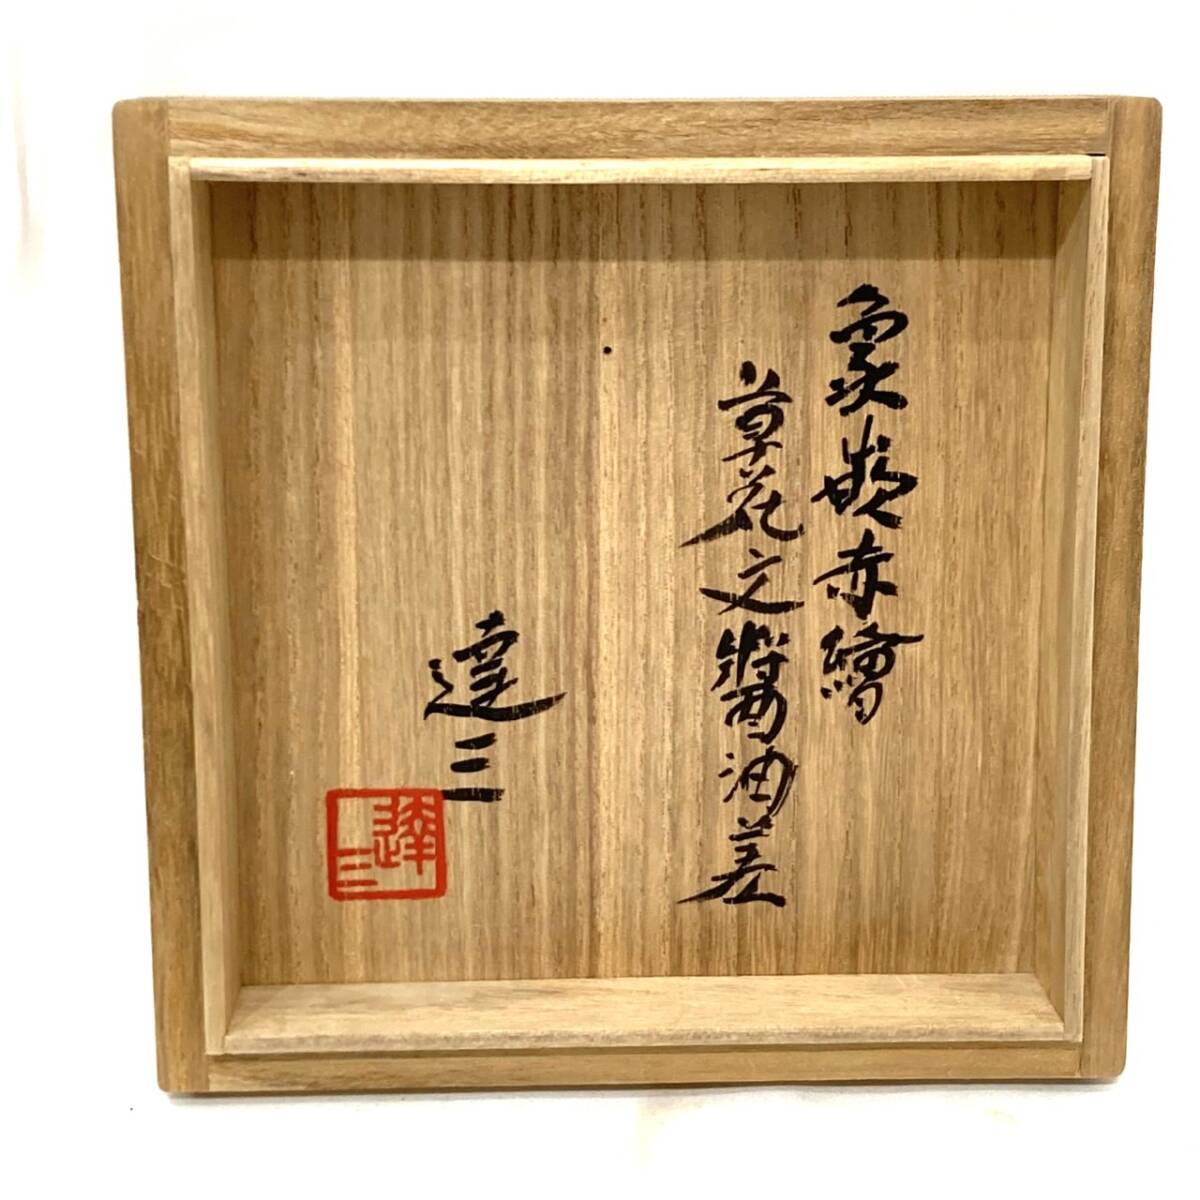 象嵌赤繪
草花文醬油差
達三
達三